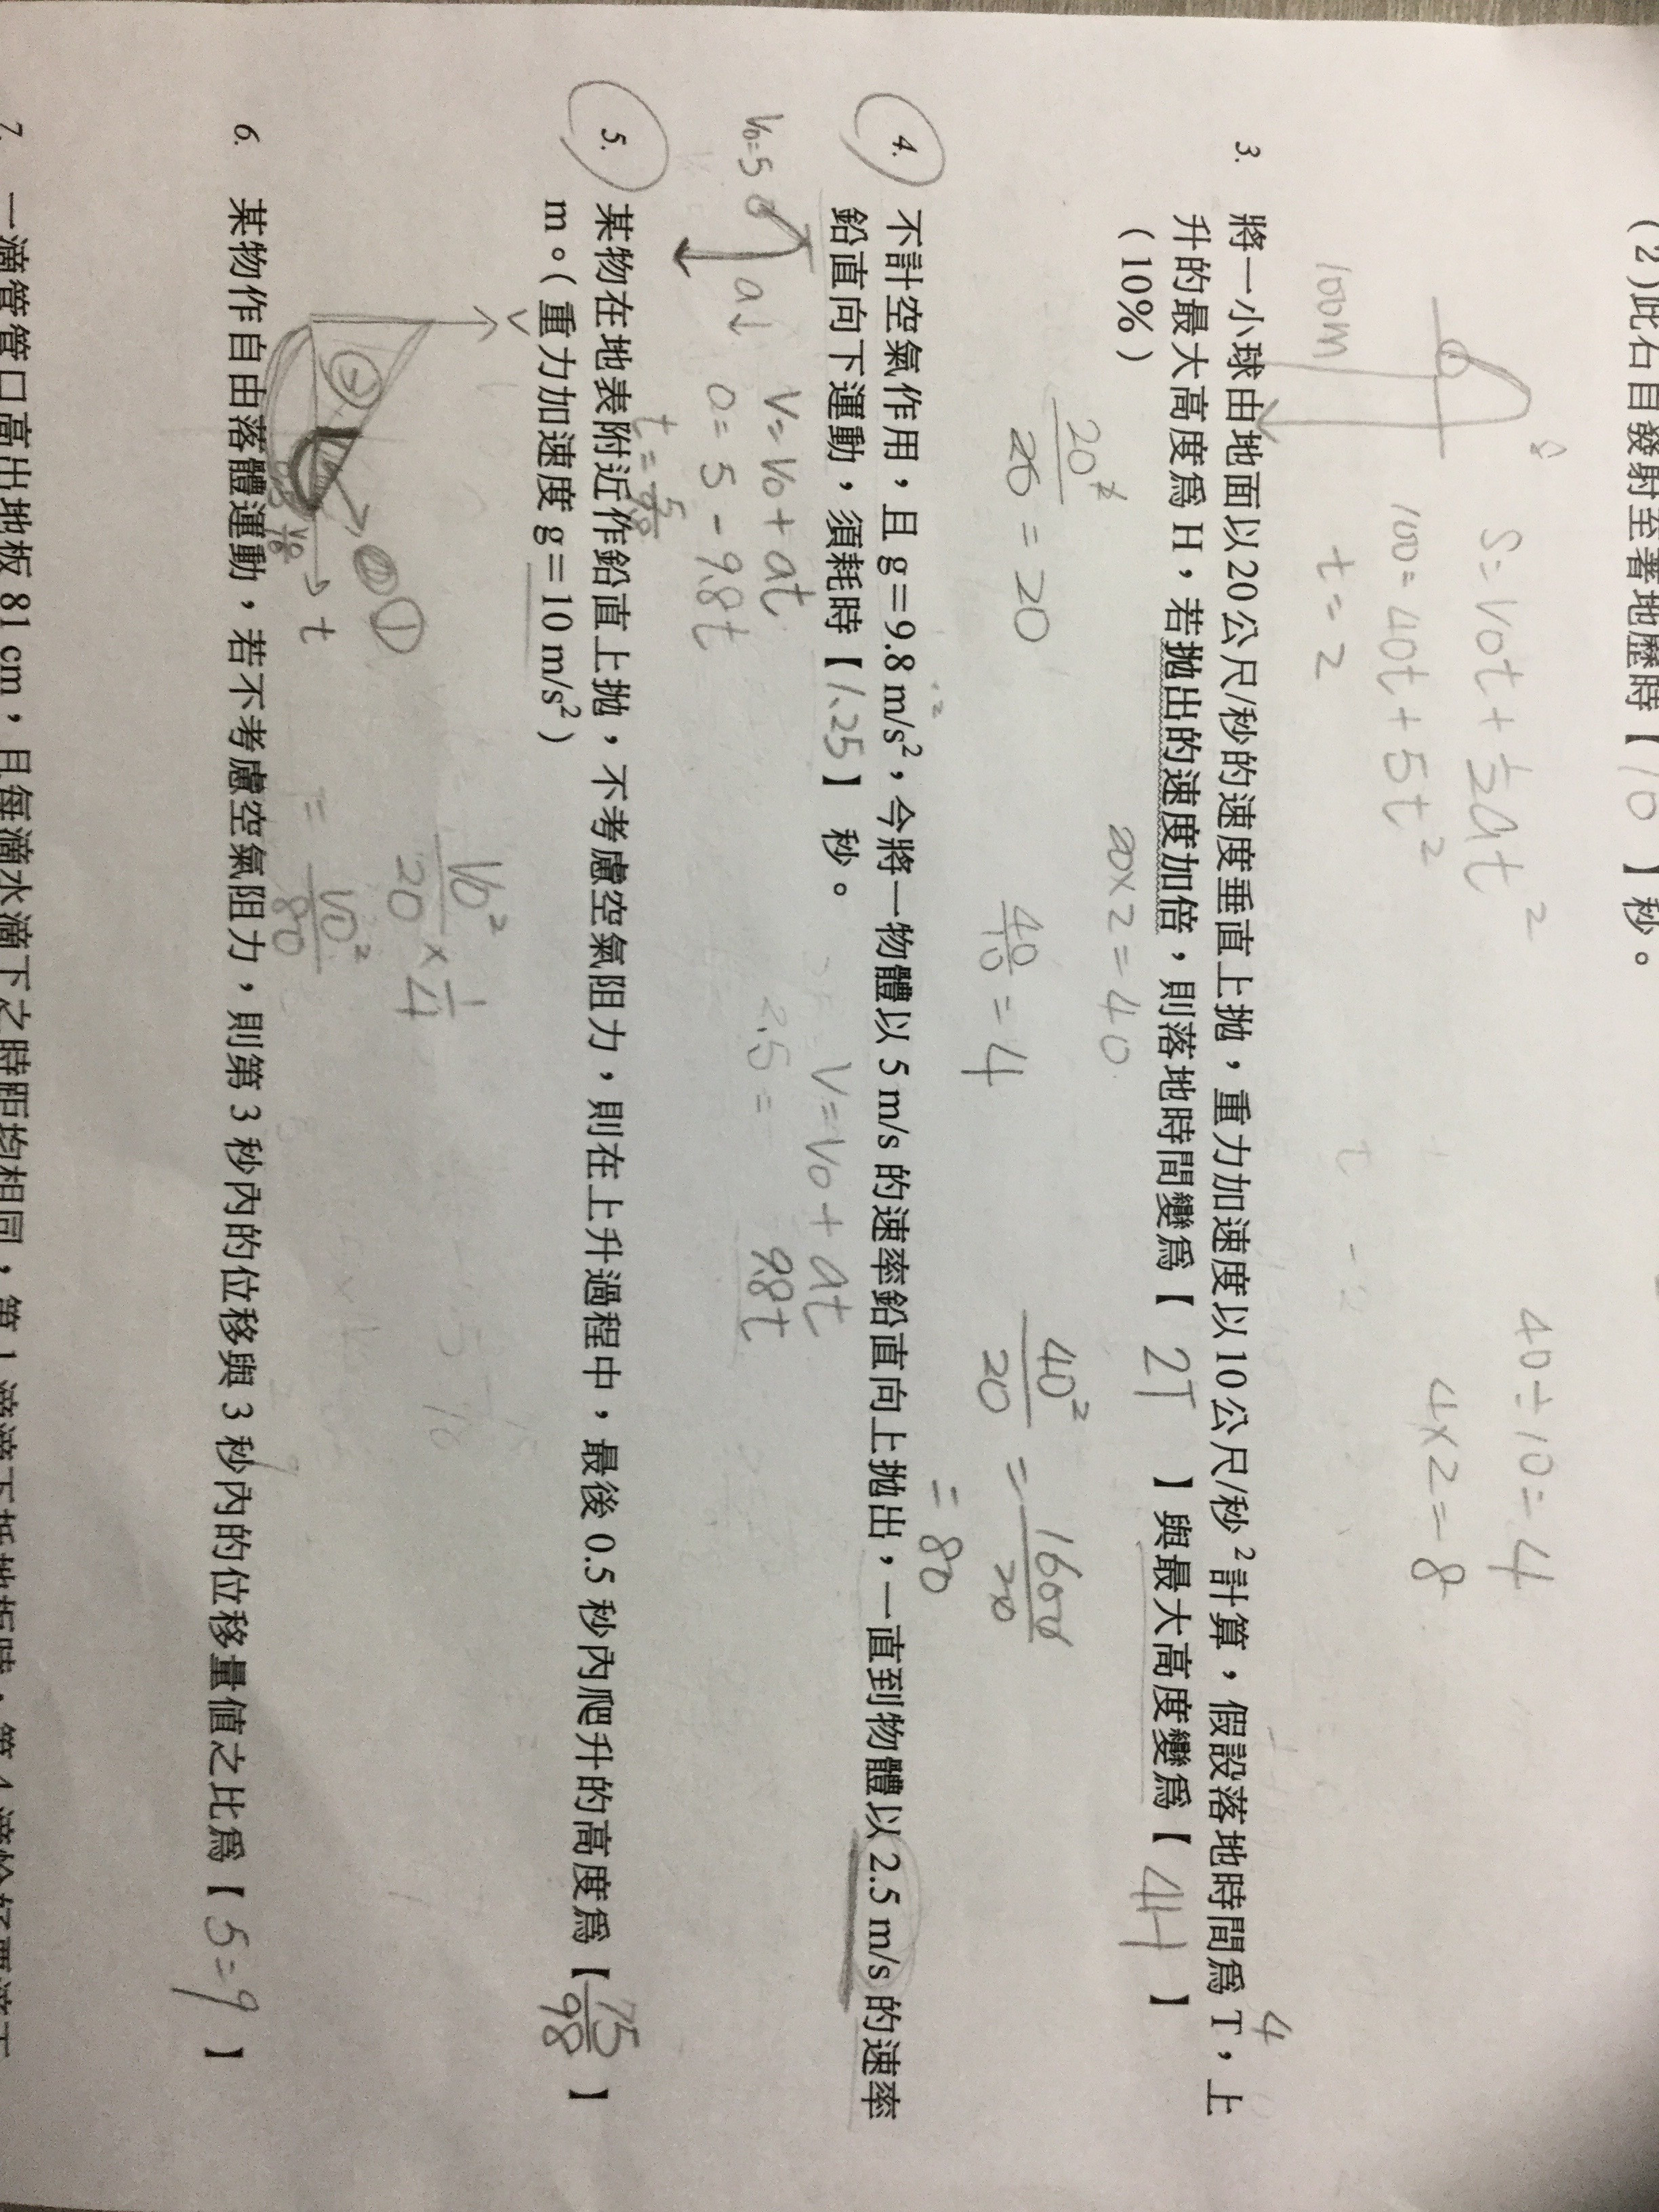 (2)此石自發射至著地歷時【 10 】秒。
S=V0t+½at²
100=40t+5t²
t=2
100m
40÷10=4
4×2=8
3. 將一小球由地面以20公尺/秒的速度垂直上拋，重力加速度以10公尺/秒²計算，假設落地時間為 T，上
4
升的最大高度為 H，若拋出的速度加倍，則落地時間變為【 2T 】與最大高度變為【 4H 】
(10%)
20×2=40
20²/20=20
40/10=4
40²/20=1600/20
=80
4. 不計空氣作用，且 g＝9.8 m/s²，今將一物體以 5 m/s 的速率鉛直向上拋出，一直到物體以 2.5 m/s 的速率
鉛直向下運動，須耗時【1.25】 秒。
V0=5
a↓
V=V0+at
0=5-9.8t
t=5/9.8
V=V0+at
2.5= 9.8t
5. 某物在地表附近作鉛直上拋，不考慮空氣阻力，則在上升過程中，最後 0.5 秒內爬升的高度為【75/98】
m。(重力加速度 g＝10 m/s²)
V
t
①
V0²/20×1/4
=V0²/80
6. 某物作自由落體運動，若不考慮空氣阻力，則第 3 秒內的位移與 3 秒內的位移量值之比為【 5=9 】
7. 一滴管管口高出地板 81 cm，且每滴水滴下之時距均相同，第 1 滴滴下抵地板時，第 4 滴恰好要滴下